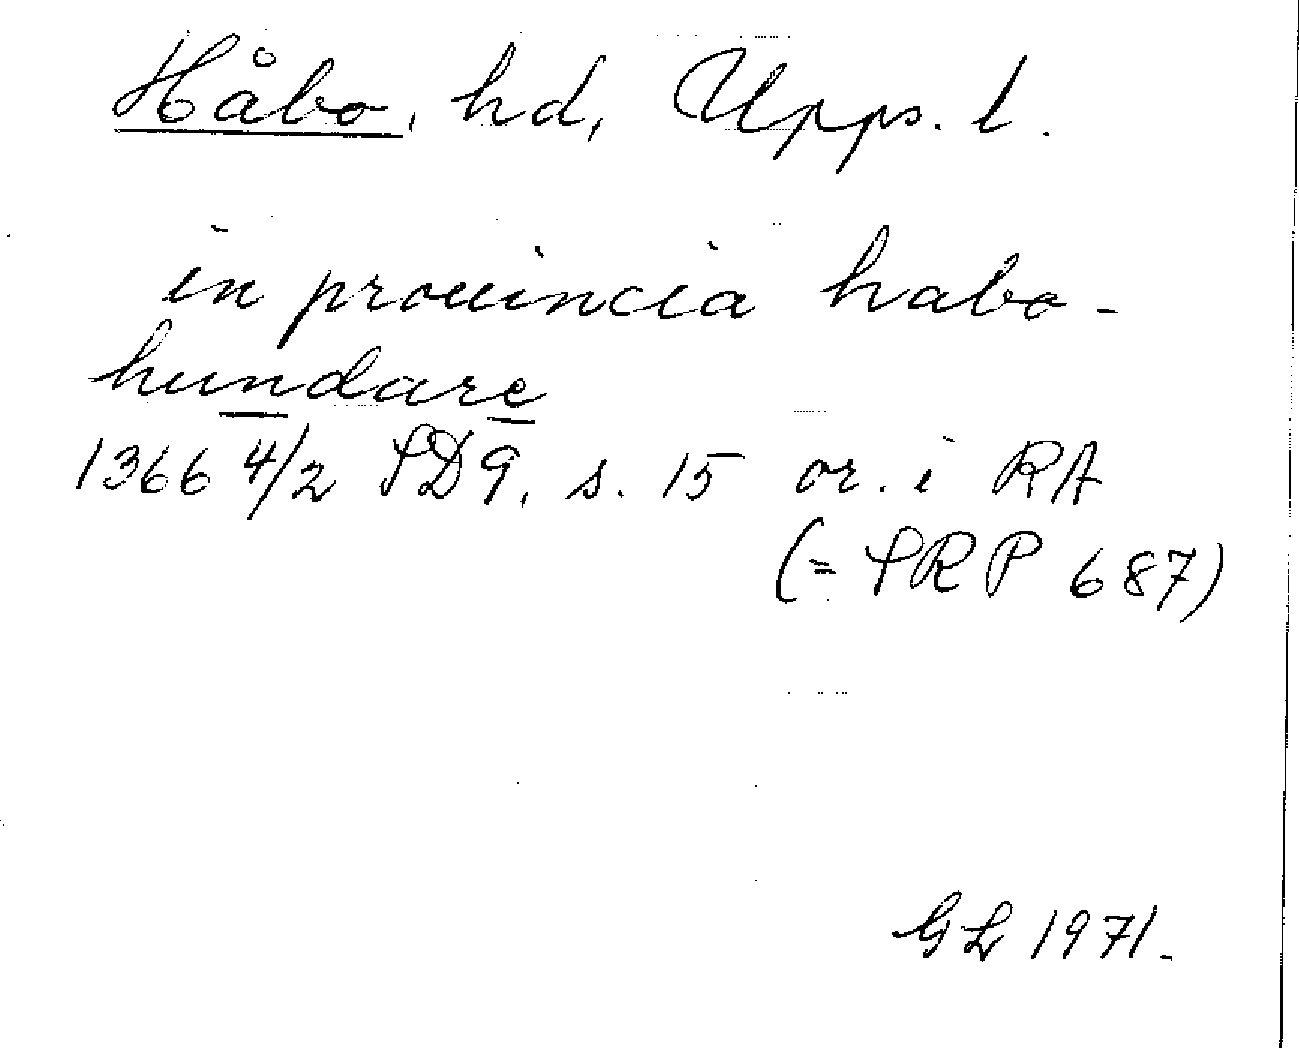 Håbo, hd, Upps. l.
in prouincia habo-
hundare
1366 4/2 SD9, s. 15 or. i RA
(= SRP 687)
GL 1971.